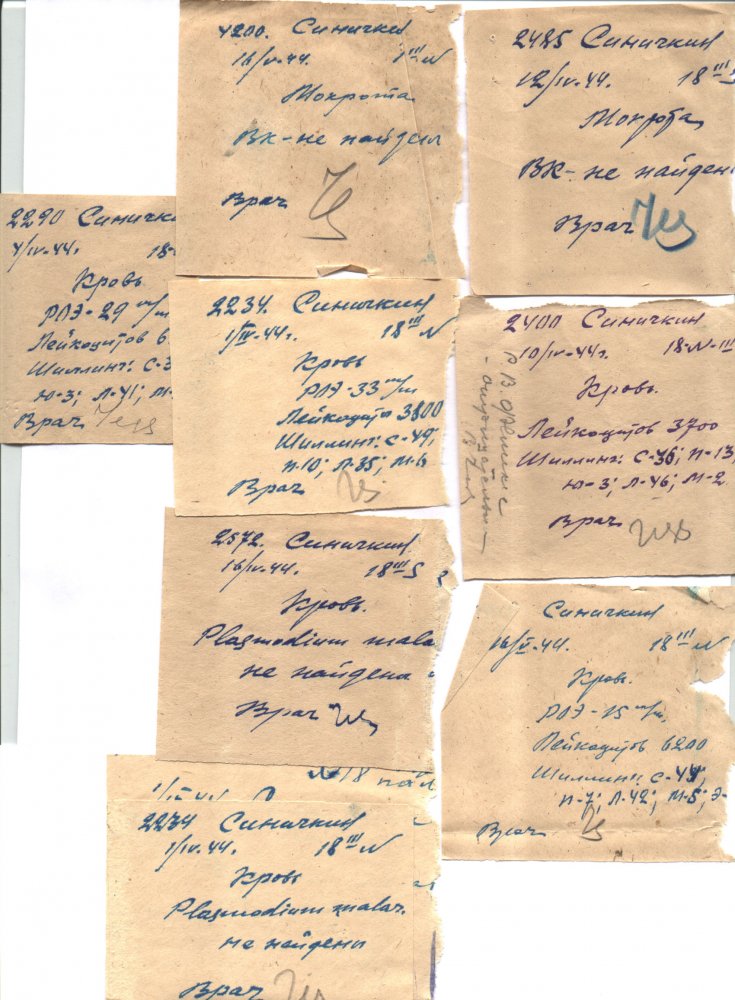 4200. Синичкин
16/V-44. 1 III N
Мокрота
ВК-не найден
Врач
2485 Синичкин
12/IV-44. 18 III
Мокрота
ВК-не найден
Врач
2290 Синичк
4/IV-44г. 18-
Кровь
РОЭ-29 m/m
Лейкоцитов 6
Шиллинг: С-3
Ю-3; Л-41; М-
Врач
2234. Синичкин
1/IV-44г. 18 III N
Кровь
РОЭ-33 m/m
Лейкоцитов 3800
Шиллинг: С-49;
П-10; Л-35; М-6
Врач
2400 Синичкин
10/IV-44г. 18-N-III
Кровь.
Лейкоцитов 3700
Шиллинг: С-36; П-13
Ю-3; Л-46; М-2
Врач
Р
отрицательн
2572. Синичкин
16/IV-44. 18 III
Кровь.
Plasmodium mala
не найдены
Врач
Синичкин
16/V-44. 18 III N
Кровь.
РОЭ-15 m/m.
Лейкоцитов 6200
Шиллинг: С-44;
П-7; Л-42; М-5; Э-
Врач
N 18
2234 Синичкин
1/IV-44. 18 III N
Кровь
Plasmodium malar.
не найдены
Врач